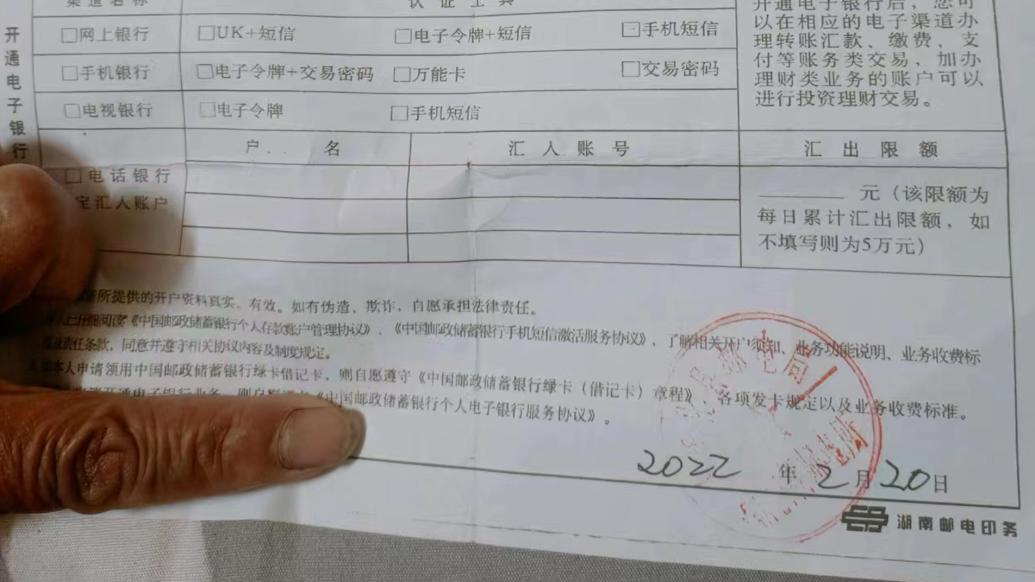 渠道名称 认证工具
开通电子银行
□网上银行 □UK+短信 □电子令牌+短信 □手机短信
□手机银行 □电子令牌+交易密码 □万能卡 □交易密码
□电视银行 □电子令牌 □手机短信
开通电子银行后，您可
以在相应的电子渠道办
理转账汇款、缴费、支
付等账务类交易，加办
理财类业务的账户可以
进行投资理财交易。
户 名 汇入账号 汇出限额
□电话银行
定汇入账户
元（该限额为
每日累计汇出限额，如
不填写则为5万元）
所提供的开户资料真实、有效。如有伪造、欺诈，自愿承担法律责任。
《中国邮政储蓄银行个人存款账户管理协议》、《中国邮政储蓄银行手机短信激活服务协议》，了解相关开户须知、业务功能说明、业务收费标
责任条款，同意并遵守相关协议内容及制度规定。
本人申请领用中国邮政储蓄银行绿卡借记卡，则自愿遵守《中国邮政储蓄银行绿卡（借记卡）章程》、各项发卡规定以及业务收费标准。
开通电子银行业务，则自愿《中国邮政储蓄银行个人电子银行服务协议》。
邮电局
2022 年 2 月 20 日
湖南邮电印务